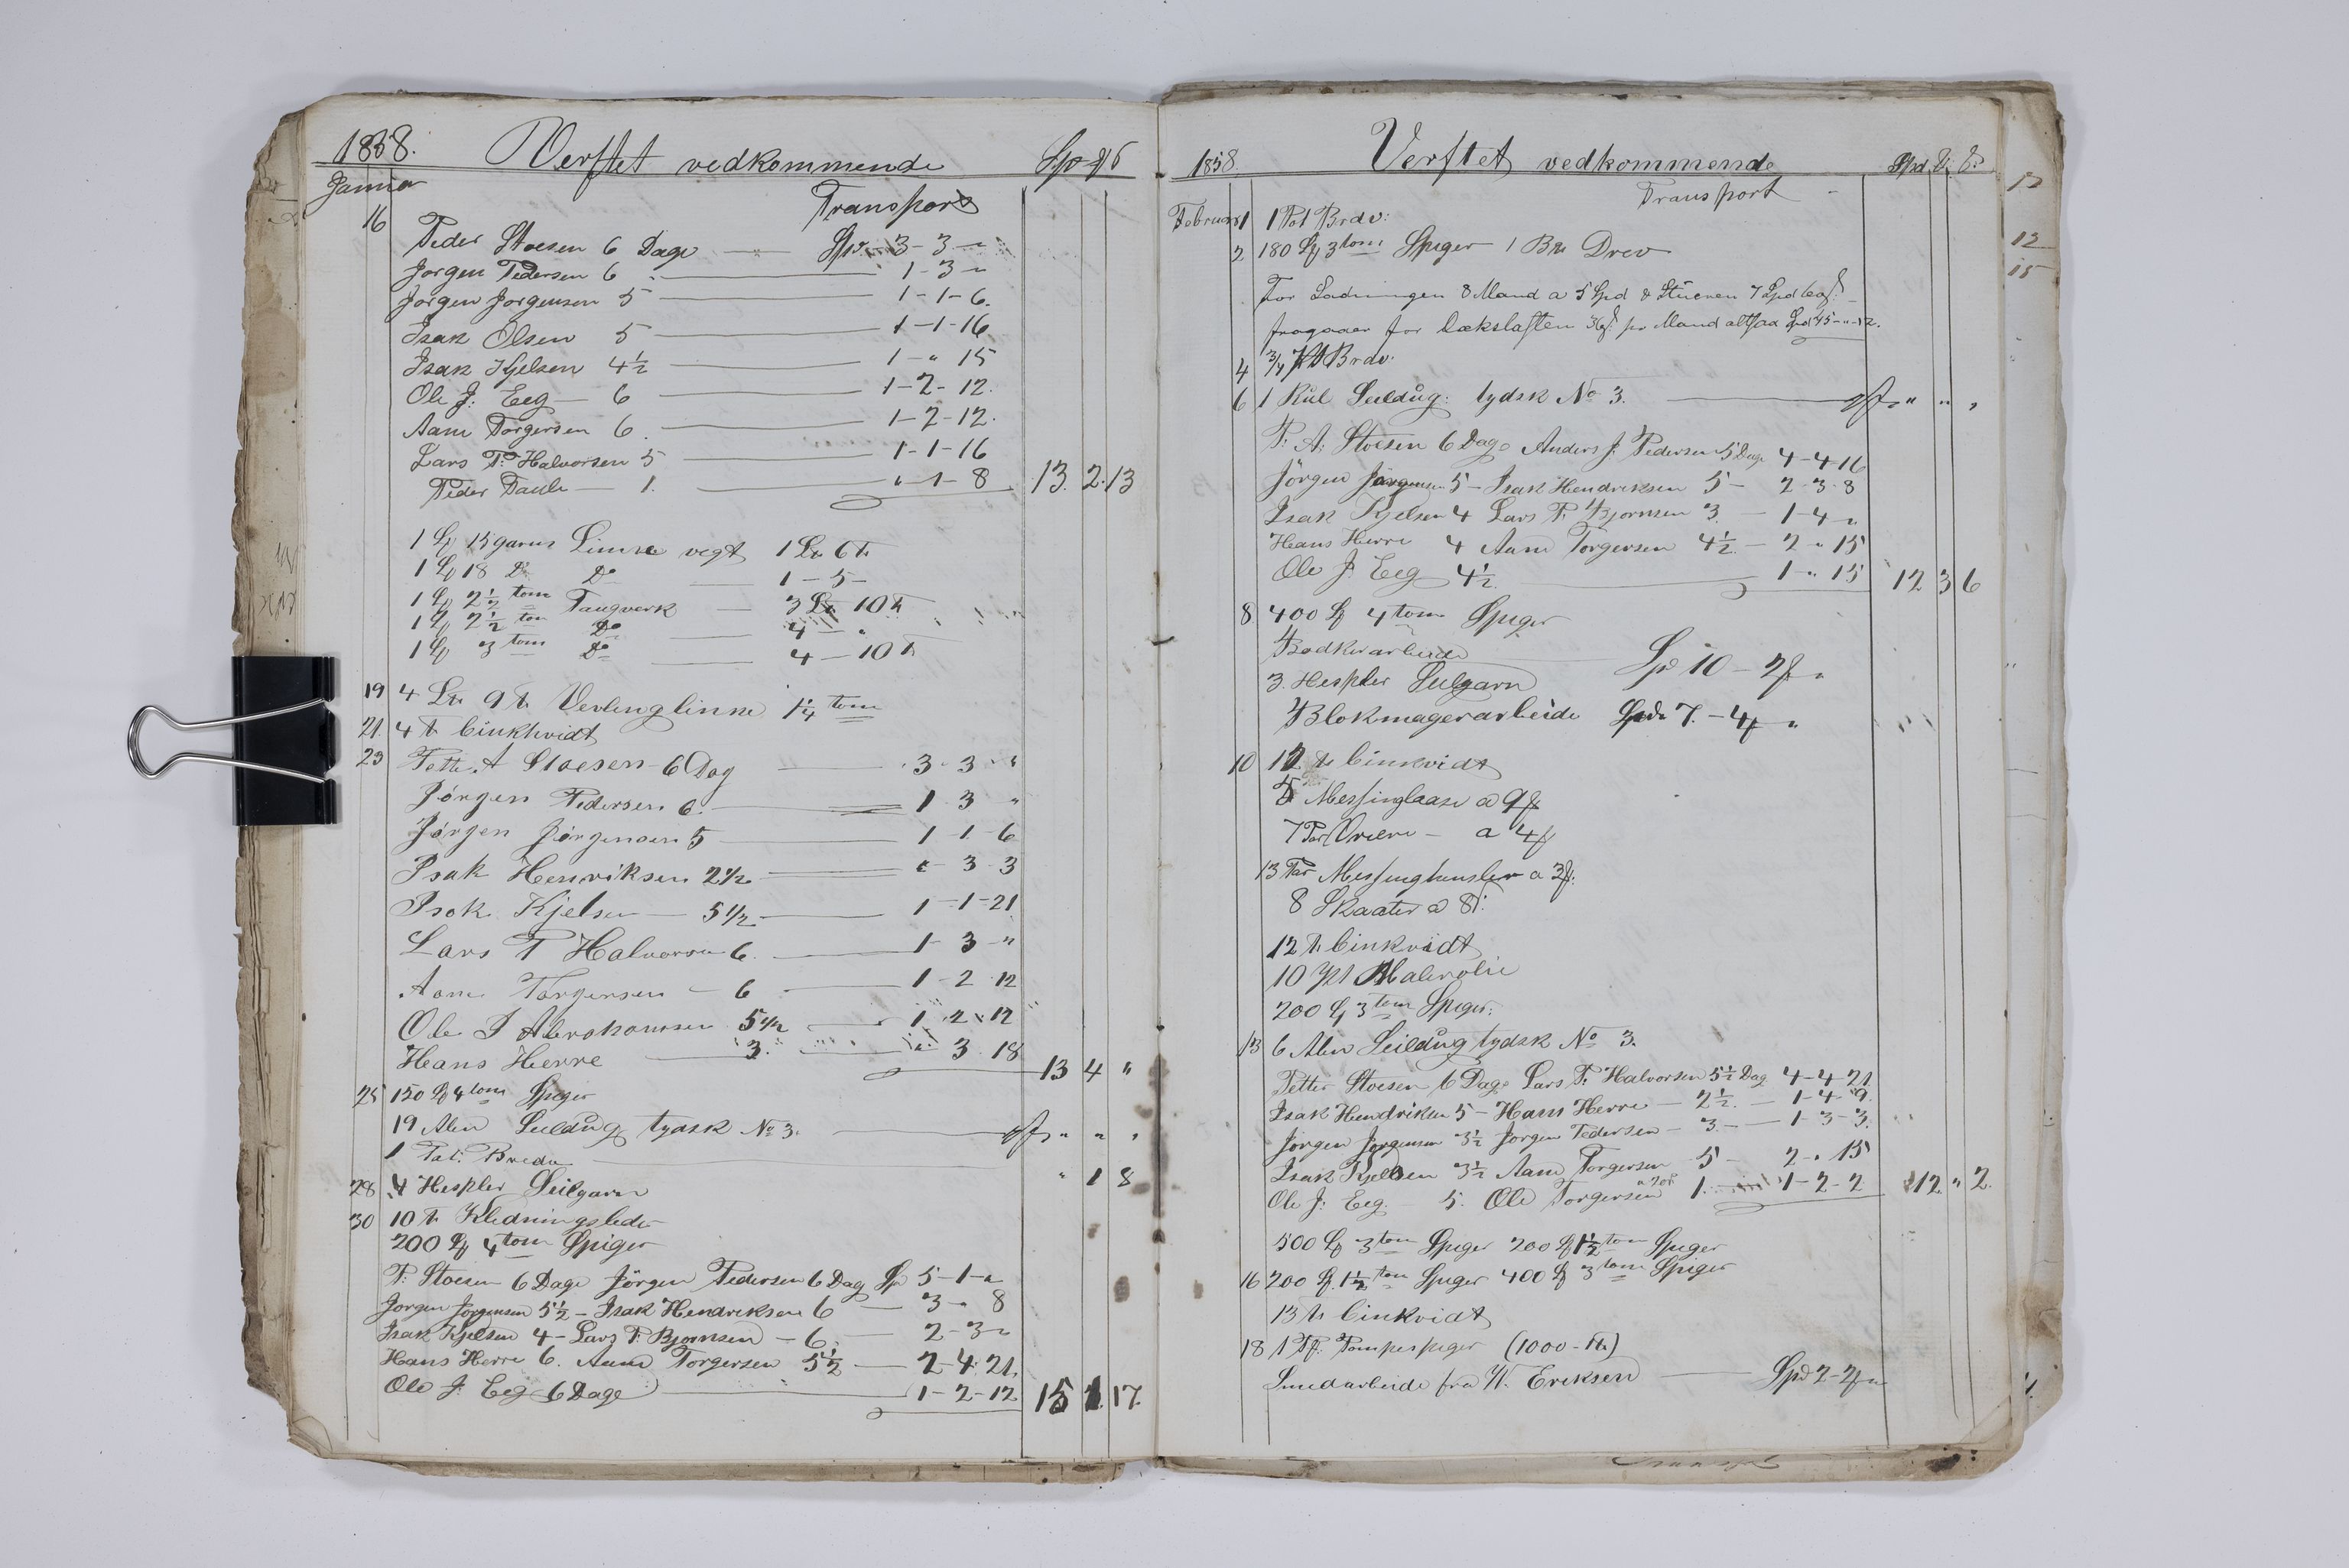 1858. Verftet vedkommende Sp
Januar Transport
16 Peder Stoesen 6 Dage Sp 3-3-"
Jorgen Pedersen 6 1-3-"
Jörgen Jorgensen 5 1-1-6.
Isak Olsen 5 1-1-16
Isak Kjelsen 4½ 1-" 15
Ole J: Eeg 6 1-2-12.
Aanu Torgersen 6 1-2-12.
Lars P: Halvorsen 5 1-1-16
Peder Paule 1. "-1-8 13. 2. 13
1 15 garns Linne vegt 1 6
1 18 Do Do 1-5-
1 2½ tom Taugverk 3 10
1 2½ tom Do 4 - "
1 3 tom Do 4-10
19 4 9 Vevlinglinne 1¼ tom
21. 4 Cinkhvidt
23 Petter A Stoesen 6 Dag 3-3-"
Jörgen Pedersen 6. 1 3 "
Jörgen Jörgensen 5 1-1-6
Isak Henriksen 2½ "-3-3
Isak Kjelsen 5½ 1-1-21
Lars P Halvorsen 6. 1-3-"
Aanu Torgersen 6 1-2-12
Ole J Abrahamsen 5½ 1 2 12
Hans Herre 3. " 3 18 13 4 "
25 150 4 tom Spiger
19 Alen Seildug tydsk No 3. " " "
1 Pot. Bredv " 1 8
28 4 Hespler Seilgarn
30 10 Kledningsleder
200 4 tom Spiger
P: Stoesen 6 Dage Jörgen Pedersen 6 Dag Sp 5-1-"
Jorgen Jorgensen 5½ - Isak Hendriksen 6 3-" 8
Isak Kjelsen 4 - Lars P. Bjornsen - 6. 2-3-"
Hans Herre 6. Aanu Torgersen 5½ 2-4-21.
Ole J: Eeg 6 Dage 1-2-12 15 1. 17.
1858. Verftet vedkommende Spd
Transport
Februar 1 1 Pot Brdv:
2 180 3 tom Spiger 1 Drev
For Ladningen 8 Mand a 5 Spd & Stueren 7 Spd
fragaaer for 36 pr Mand altsaa Spd 45-"-12.
4 ¾ Pot Brdv.
6 1 Rul Seildug: tydsk No 3. " " "
P: A: Stoesen 6 Dage Anders J. Pedersen 5 Dage 4-4-16
Jörgen Jorgensen 5 - Isak Hendriksen 5 - 2-3-8
Isak Kjelsen 4 Lars P. Bjornsen 3. - 1-4-"
Hans Herre 4 Aanu Torgersen 4½ - 2-" 15
Ole J: Eeg 4½ 1-" 15 12 3 6
8 400 4 tom Spiger
Bodkerarbeide Sp 10-2 "
3. Hespler Seilgarn
Blokmagerarbeide Spd 7.-4 "
10 12 Cinkvidt
5 Messinglaase a 9
7 Par Vrilere - a 4
13 Par Messinghensler a 3
8 Skaater a 8
12 Cinkvidt
10 Pot Malerolie
200 3 tom Spiger.
13 6 Alen Seildug tydsk No 3.
Petter Stoesen 6 Dage Lars P. Halvorsen 5½ Dag 4-4-21
Isak Hendriksen 5 - Hans Herre - 2½ - 1-4-9
Jorgen Jorgensen 3½ Jorgen Pedersen - 3. - 1-3-3.
Isak Kjelsen 3½ Aanu Torgersen 5 2-" 15
Ole J: Eeg. 5. Ole Torgersen 1. 1-2-2 12. " 2.
500 3 tom Spiger 200 1½ tom Spiger
16 200 1½ tom Spiger 400 3 tom Spiger
13 Cinkvidt
18 1 Pompespiger (1000 - )
Smedarbeide fra W. Eriksen Spd 2-2 "
12
15